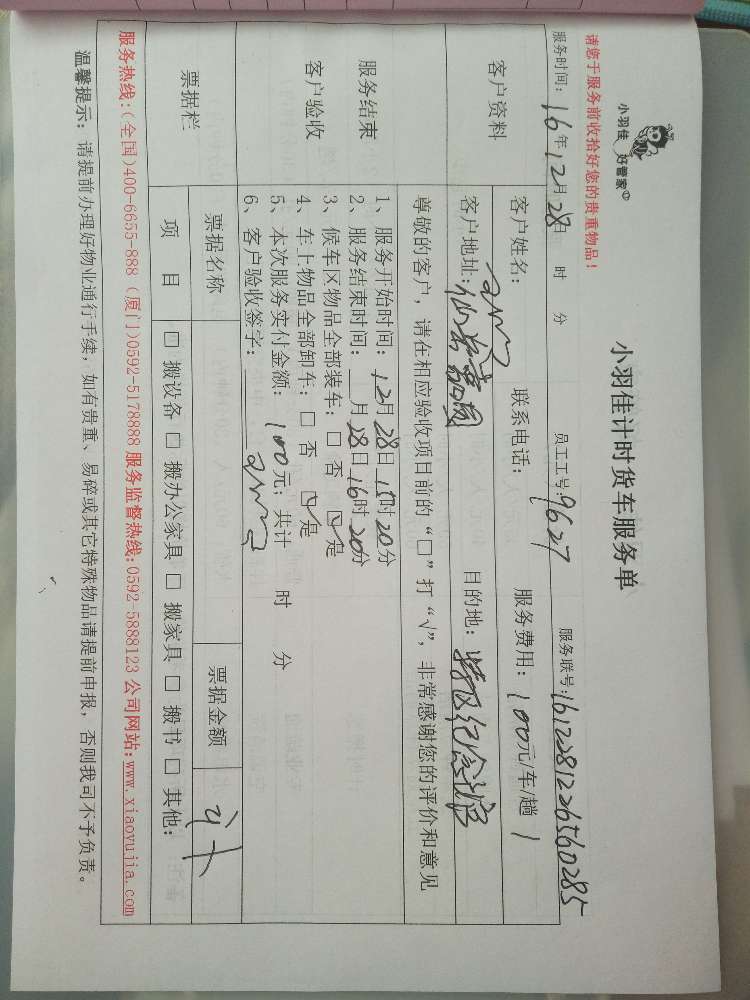 小羽佳 好管家
请您于服务前收拾好您的贵重物品!
小羽佳计时货车服务单
服务时间: 16年12月28日 时 分 员工工号: 9627 服务联号: 16122812265560285
客户资料
客户姓名: 联系电话: 服务费用: 100元/车/趟 1
客户地址: 仙岳 目的地: 特区纪念馆
尊敬的客户，请在相应验收项目前的“□”打“√”，非常感谢您的评价和意见
服务结束
客户验收
1、服务开始时间: 12月28日15时20分
2、服务结束时间: 月28日16时20分
3、候车区物品全部装车: □ 否 ☑是
4、车上物品全部卸车: □ 否 ☑是
5、本次服务实付金额: 100元; 共计 时 分
6、客户验收签字:
票据栏
票据名称 票据金额
项 目 □ 搬设备 □ 搬办公家具 □ 搬家具 □ 搬书 □ 其他:
服务热线:(全国)400-6655-888 (厦门)0592-5178888 服务监督热线:0592-5888123 公司网站:www.xiaoyujia.com
温馨提示: 请提前办理好物业通行手续，如有贵重、易碎或其它特殊物品请提前申报，否则我司不予负责。